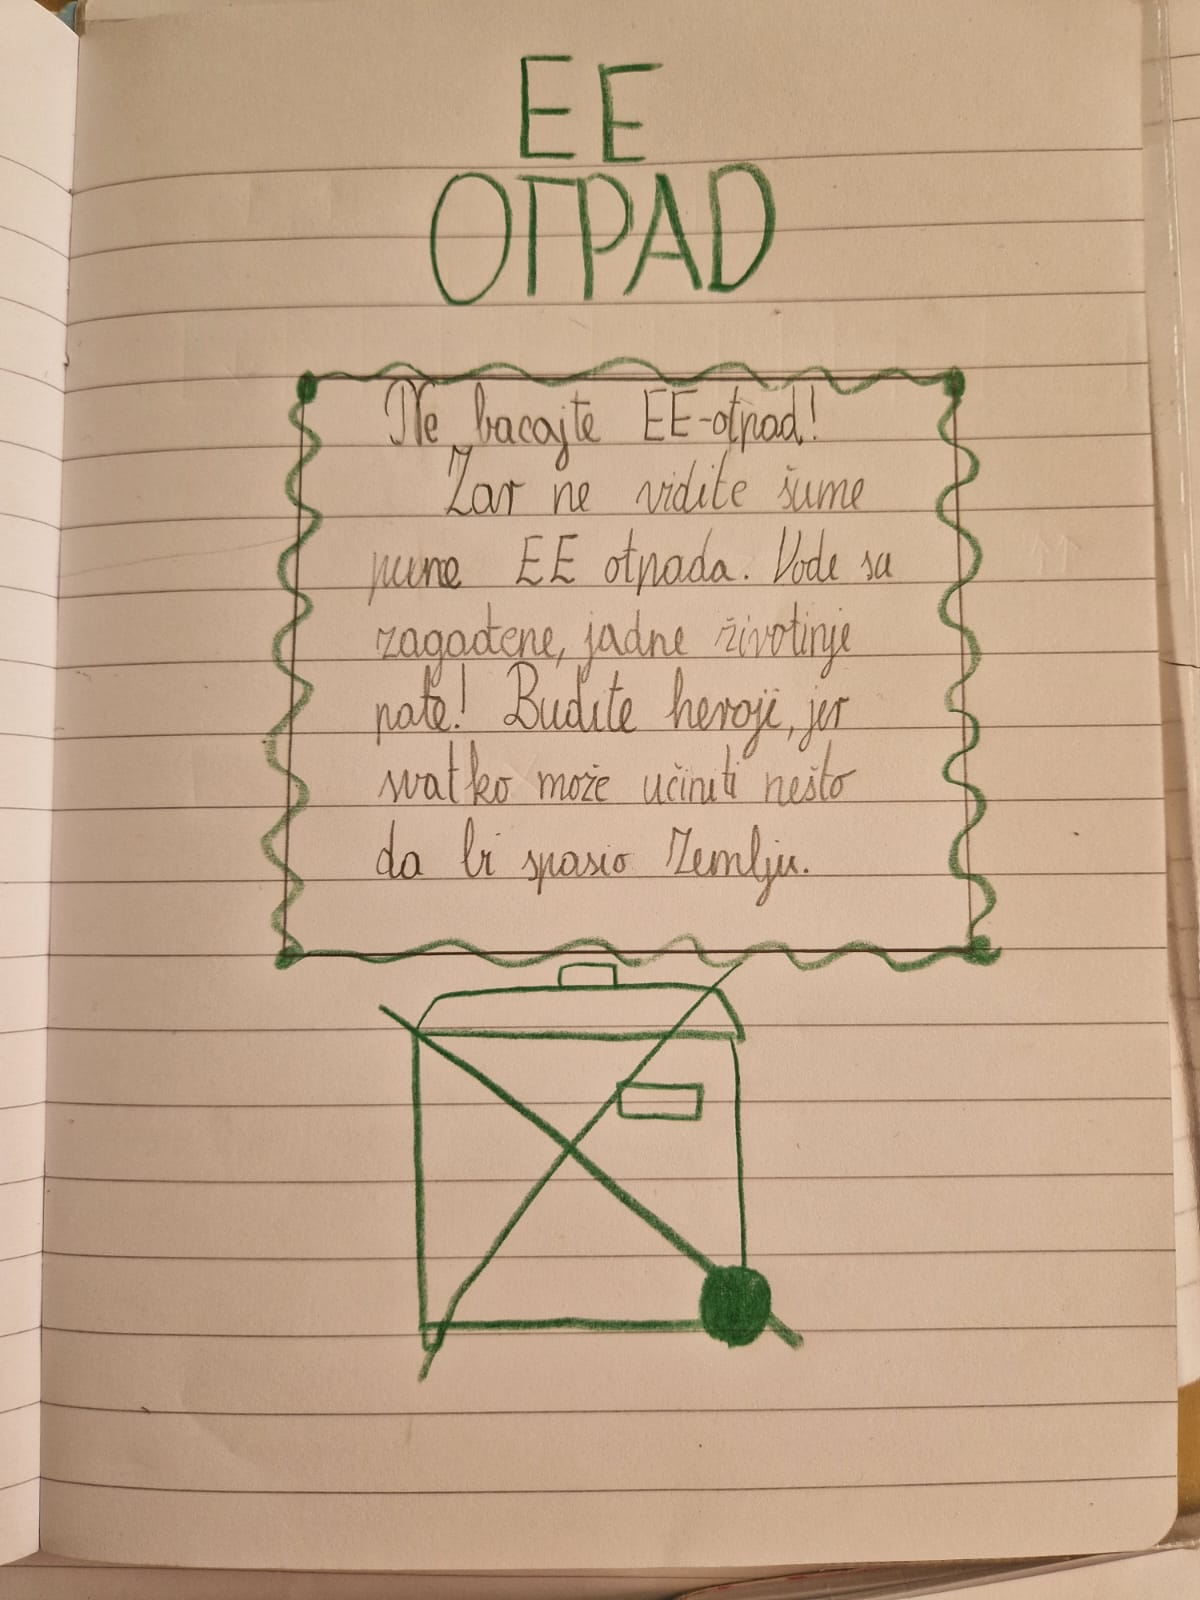 EE
OTPAD
Ne bacajte EE-otpad!
Zar ne vidite šume
pune EE otpada. Vode su
zagađene, jadne životinje
pate! Budite heroji, jer
svatko može učiniti nešto
da bi spasio Zemlju.